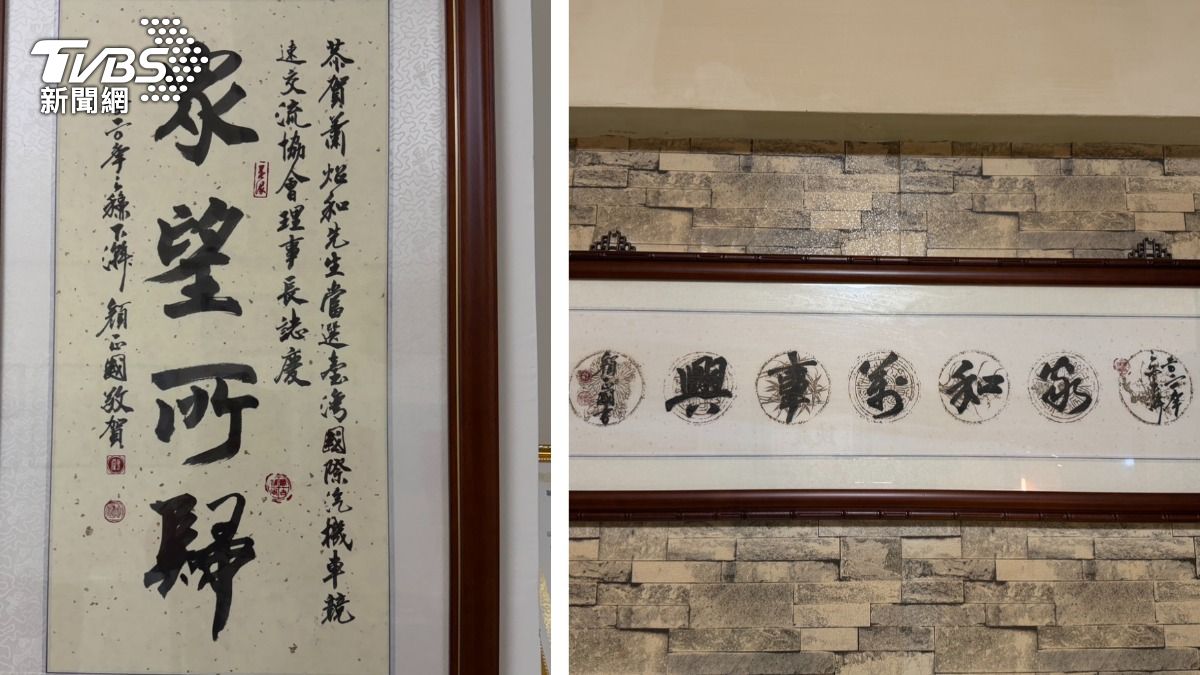 TVBS
新聞網
恭賀蕭炤和先生當選臺灣國際汽機車競
速交流協會理事長誌慶
眾望所歸
顏正國敬賀
家和萬事興
顏正國書